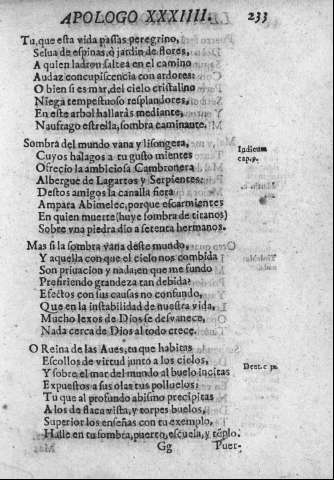 APOLOGO XXXIIII. 233
Tu, que esta vida passas peregrino,
Selua de espinas, ò jardin de flores,
A quien ladron saltea en el camino
Audaz concupiscencia con ardores:
O bien si es mar, del cielo cristalino
Niega tempestuoso resplandores,
En este arbol hallaràs mediante,
Naufrago estrella, sombra caminante.
Sombra del mundo vana y lisongera,
Cuyos halagos a tu gusto mientes
Ofrecio la ambiciosa Cambronera
Albergue de Lagartos y Serpientes:
Destos amigos la canalla fiera
Ampara Abimelec, porque escarmientes
En quien muerte (huye sombra de titanos)
Sobre vna piedra dio a setenta hermanos.
Iudicum
cap. 9.
Mas si la sombra vana deste mundo,
Y aquella con que el cielo nos combida
Son priuacion y nada, en que me fundo
Prefiriendo grandeza tan debida?
Efectos con sus causas no confundo,
Que en la instabilidad de nuestra vida,
Mucho lexos de Dios se desvanece,
Nada cerca de Dios al todo crece.
O Reina de las Aues, tu que habitas
Escollos de virtud junto a los cielos,
Y sobre el mar del mundo al buelo incitas
Expuestos a sus olas tus polluelos:
Tu que al profundo abismo precipitas
A los de flaca vista, y torpes buelos,
Superior los enseñas con tu exemplo,
Halle en tu sombra, puerto, escuela, y tẽplo.
Deut. c
Gg Puer-